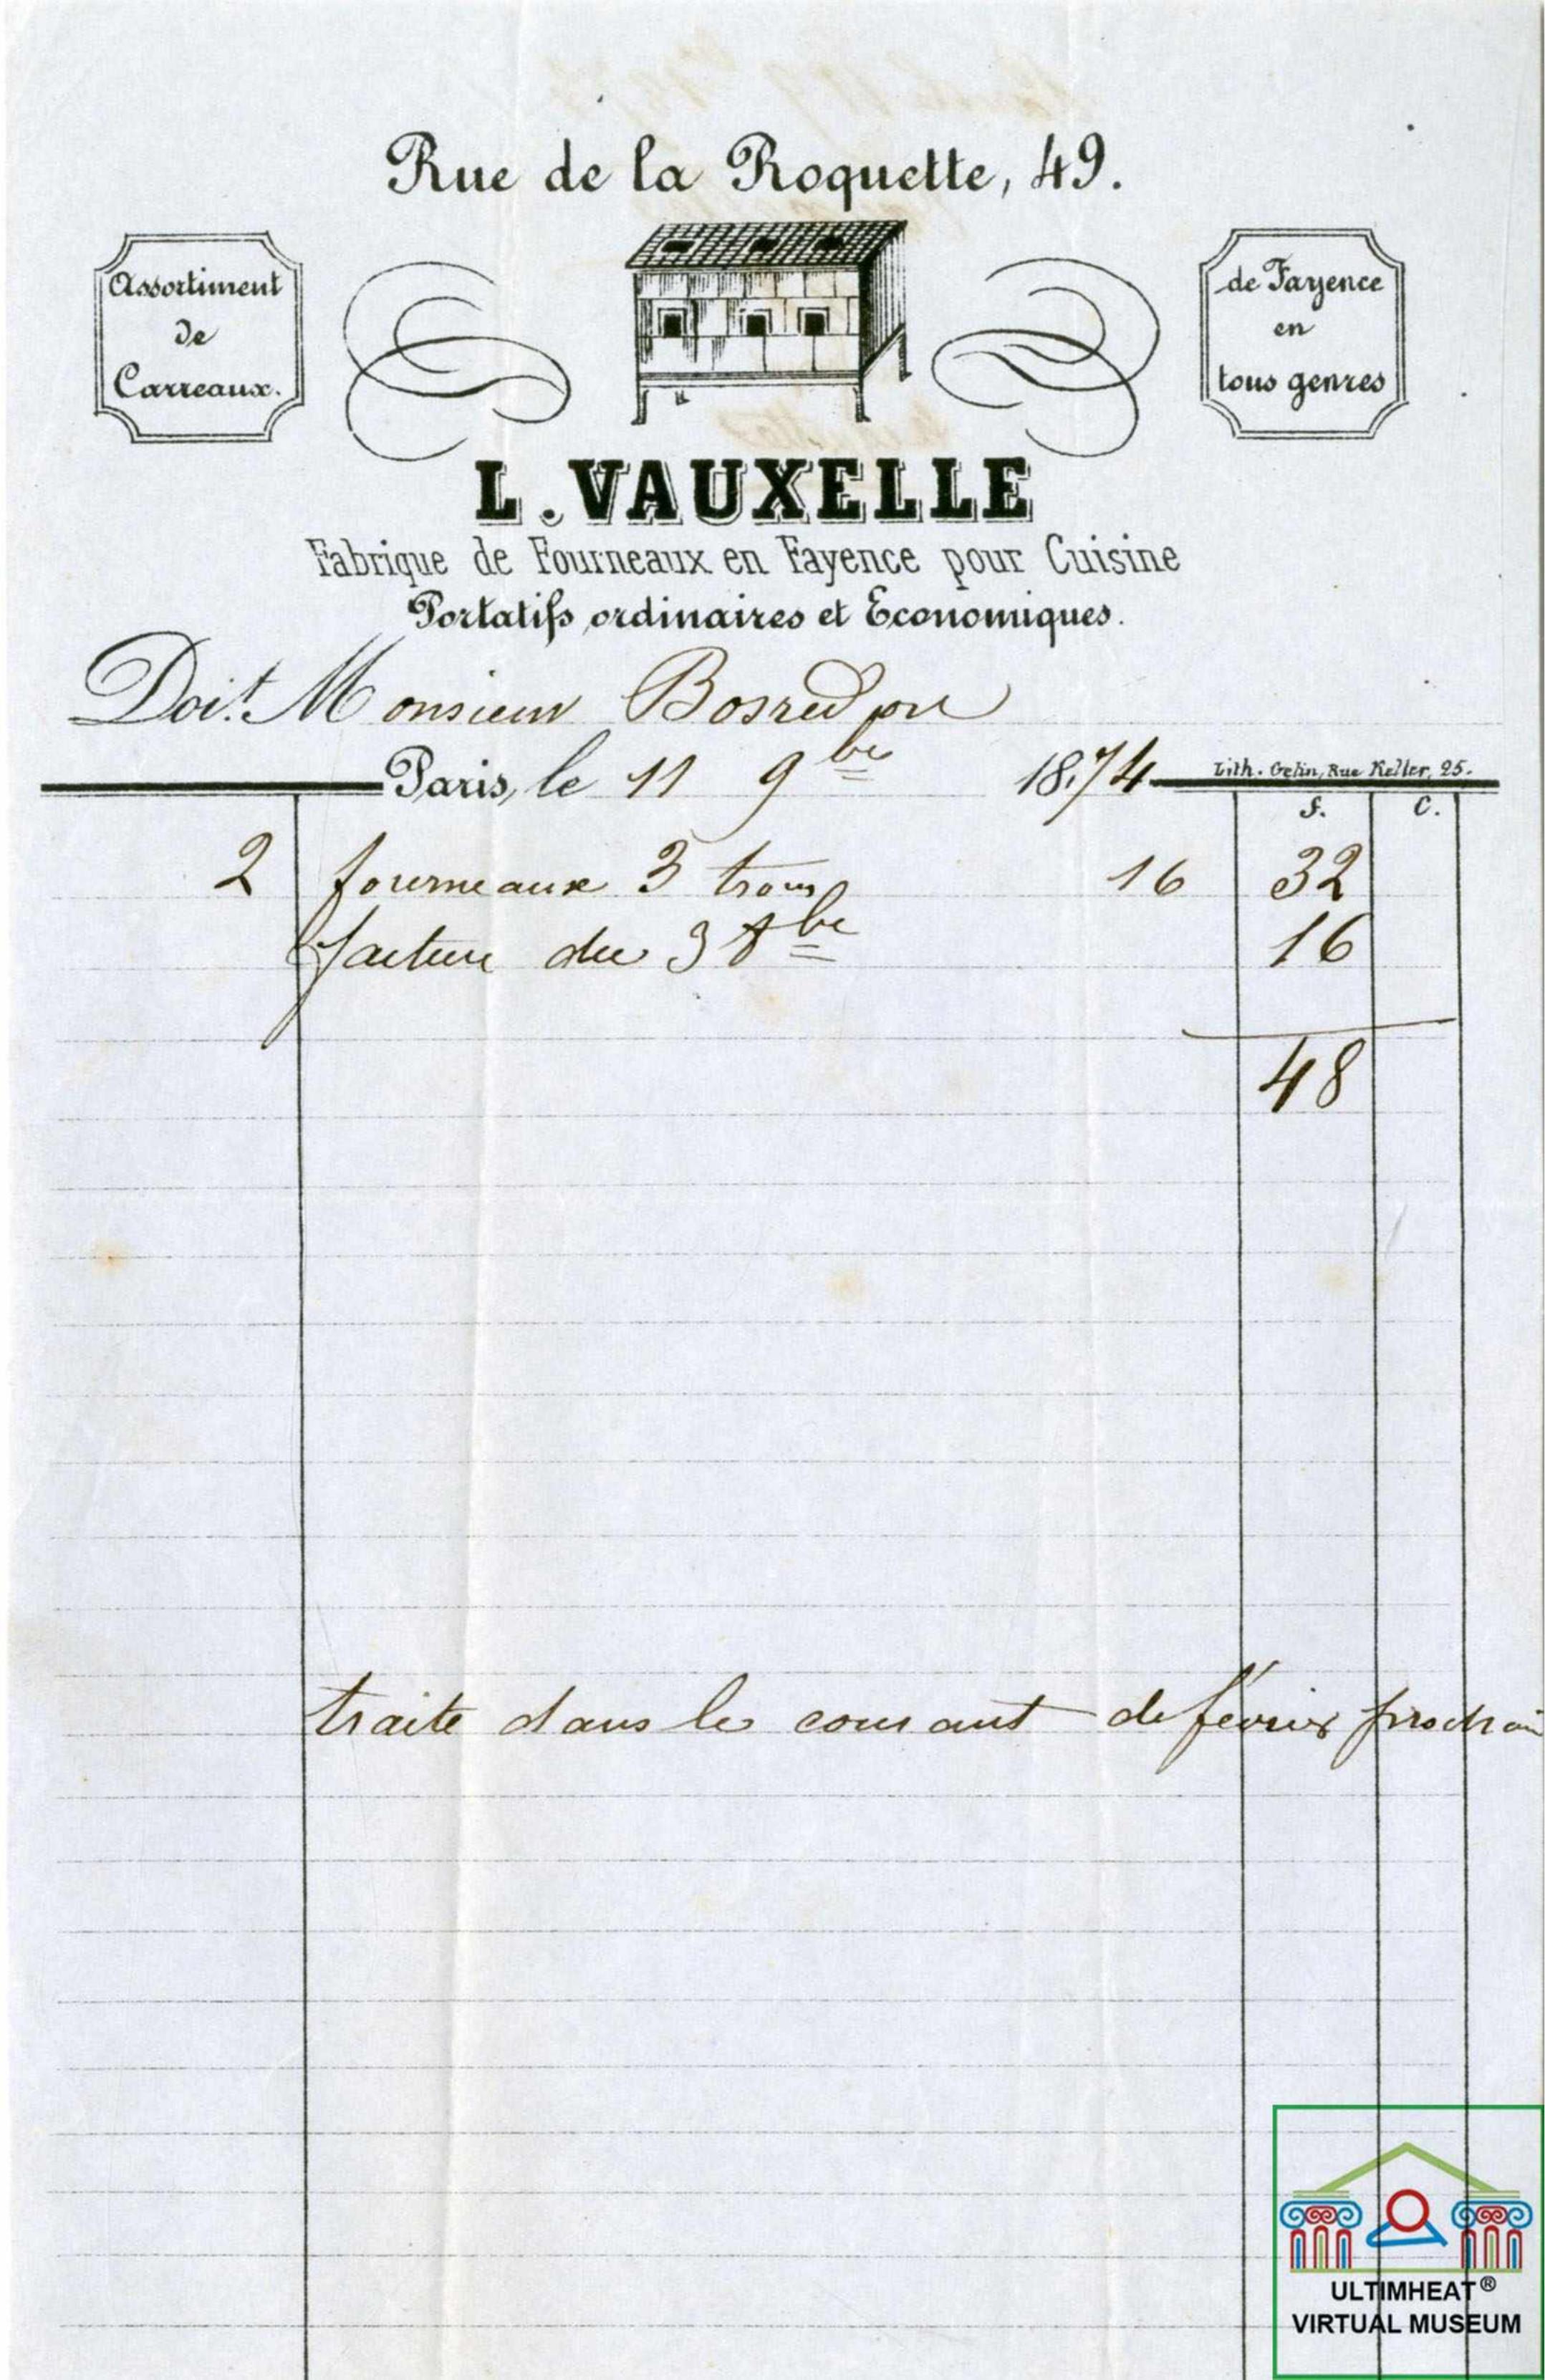 Rue de la Roquette, 49.
Assortiment
de
Carreaux.
de Fayence
en
tous genres
L. VAUXELLE
Fabrique de Fourneaux en Fayence pour Cuisine
Portatifs ordinaires et Economiques.
Doit Monsieur Bosredon
Paris, le 11 9bre 1874
Lith. Gelin, Rue Keller, 25.
f. C.
2 fourneaux 3 trous 16 32
facture du 3 8bre 16
48
traite dans le courant de février prochain
ULTIMHEAT®
VIRTUAL MUSEUM